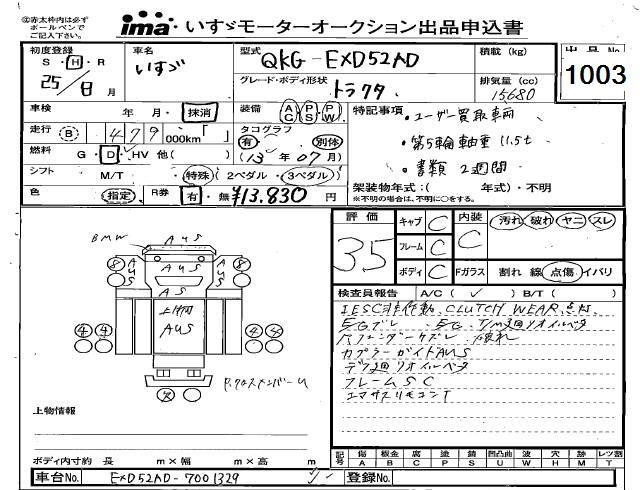 ㊟赤太枠内は必ず
ボールペンで
ご記入下さい。
ima いすゞモーターオークション出品申込書
初度登録 車名 型式 QKG-EXD52AD 積載 (kg) 出品No.
S・H・R いすゞ グレード・ボディ形状 1003
25年8月 トラクタ 排気量 (cc) 15680
車検 年 月・抹消 装備 AC PS PW 特記事項
・ユーザー買取車両
走行 B 479000km「 」 タコグラフ 有 別体
・第5輪軸重 11.5t
燃料 G・D・HV 他( ) (13年07月)
・書類2週間
シフト M/T 特殊(2ペダル・3ペダル) 架装物年式:( 年式)・不明
※不明の場合は、不明に○をする。
色 指定 R券 有・無 ¥13,830円
評価 35 キャブ C 内装 C 汚れ 破れ ヤニ スレ
フレーム C
ボディ C Fガラス 割れ 線 点傷 イバリ
検査員報告 A/C( ✓ ) B/T( )
IESC非作動、CLUTCH WEAR点灯、
E/Gズレ、E/G、T/M廻リオイルベタ
カプラーガイドAUS
デフ廻リオイルベタ
フレームSC
エマサスリモコンT
BMW AUS
8 AUS AUS 8
AUS
AUS
上物内
AUS
4 4 4 4
R.クロスメンバーU
上物情報
ボディ内寸約 長 m×幅 m×高 m
記号 傷A 板金B 腐C 塗P 錆S 凹凸曲U 波W 穴H 欠M レツ割T
車台No. EXD52AD-7001329 登録No.